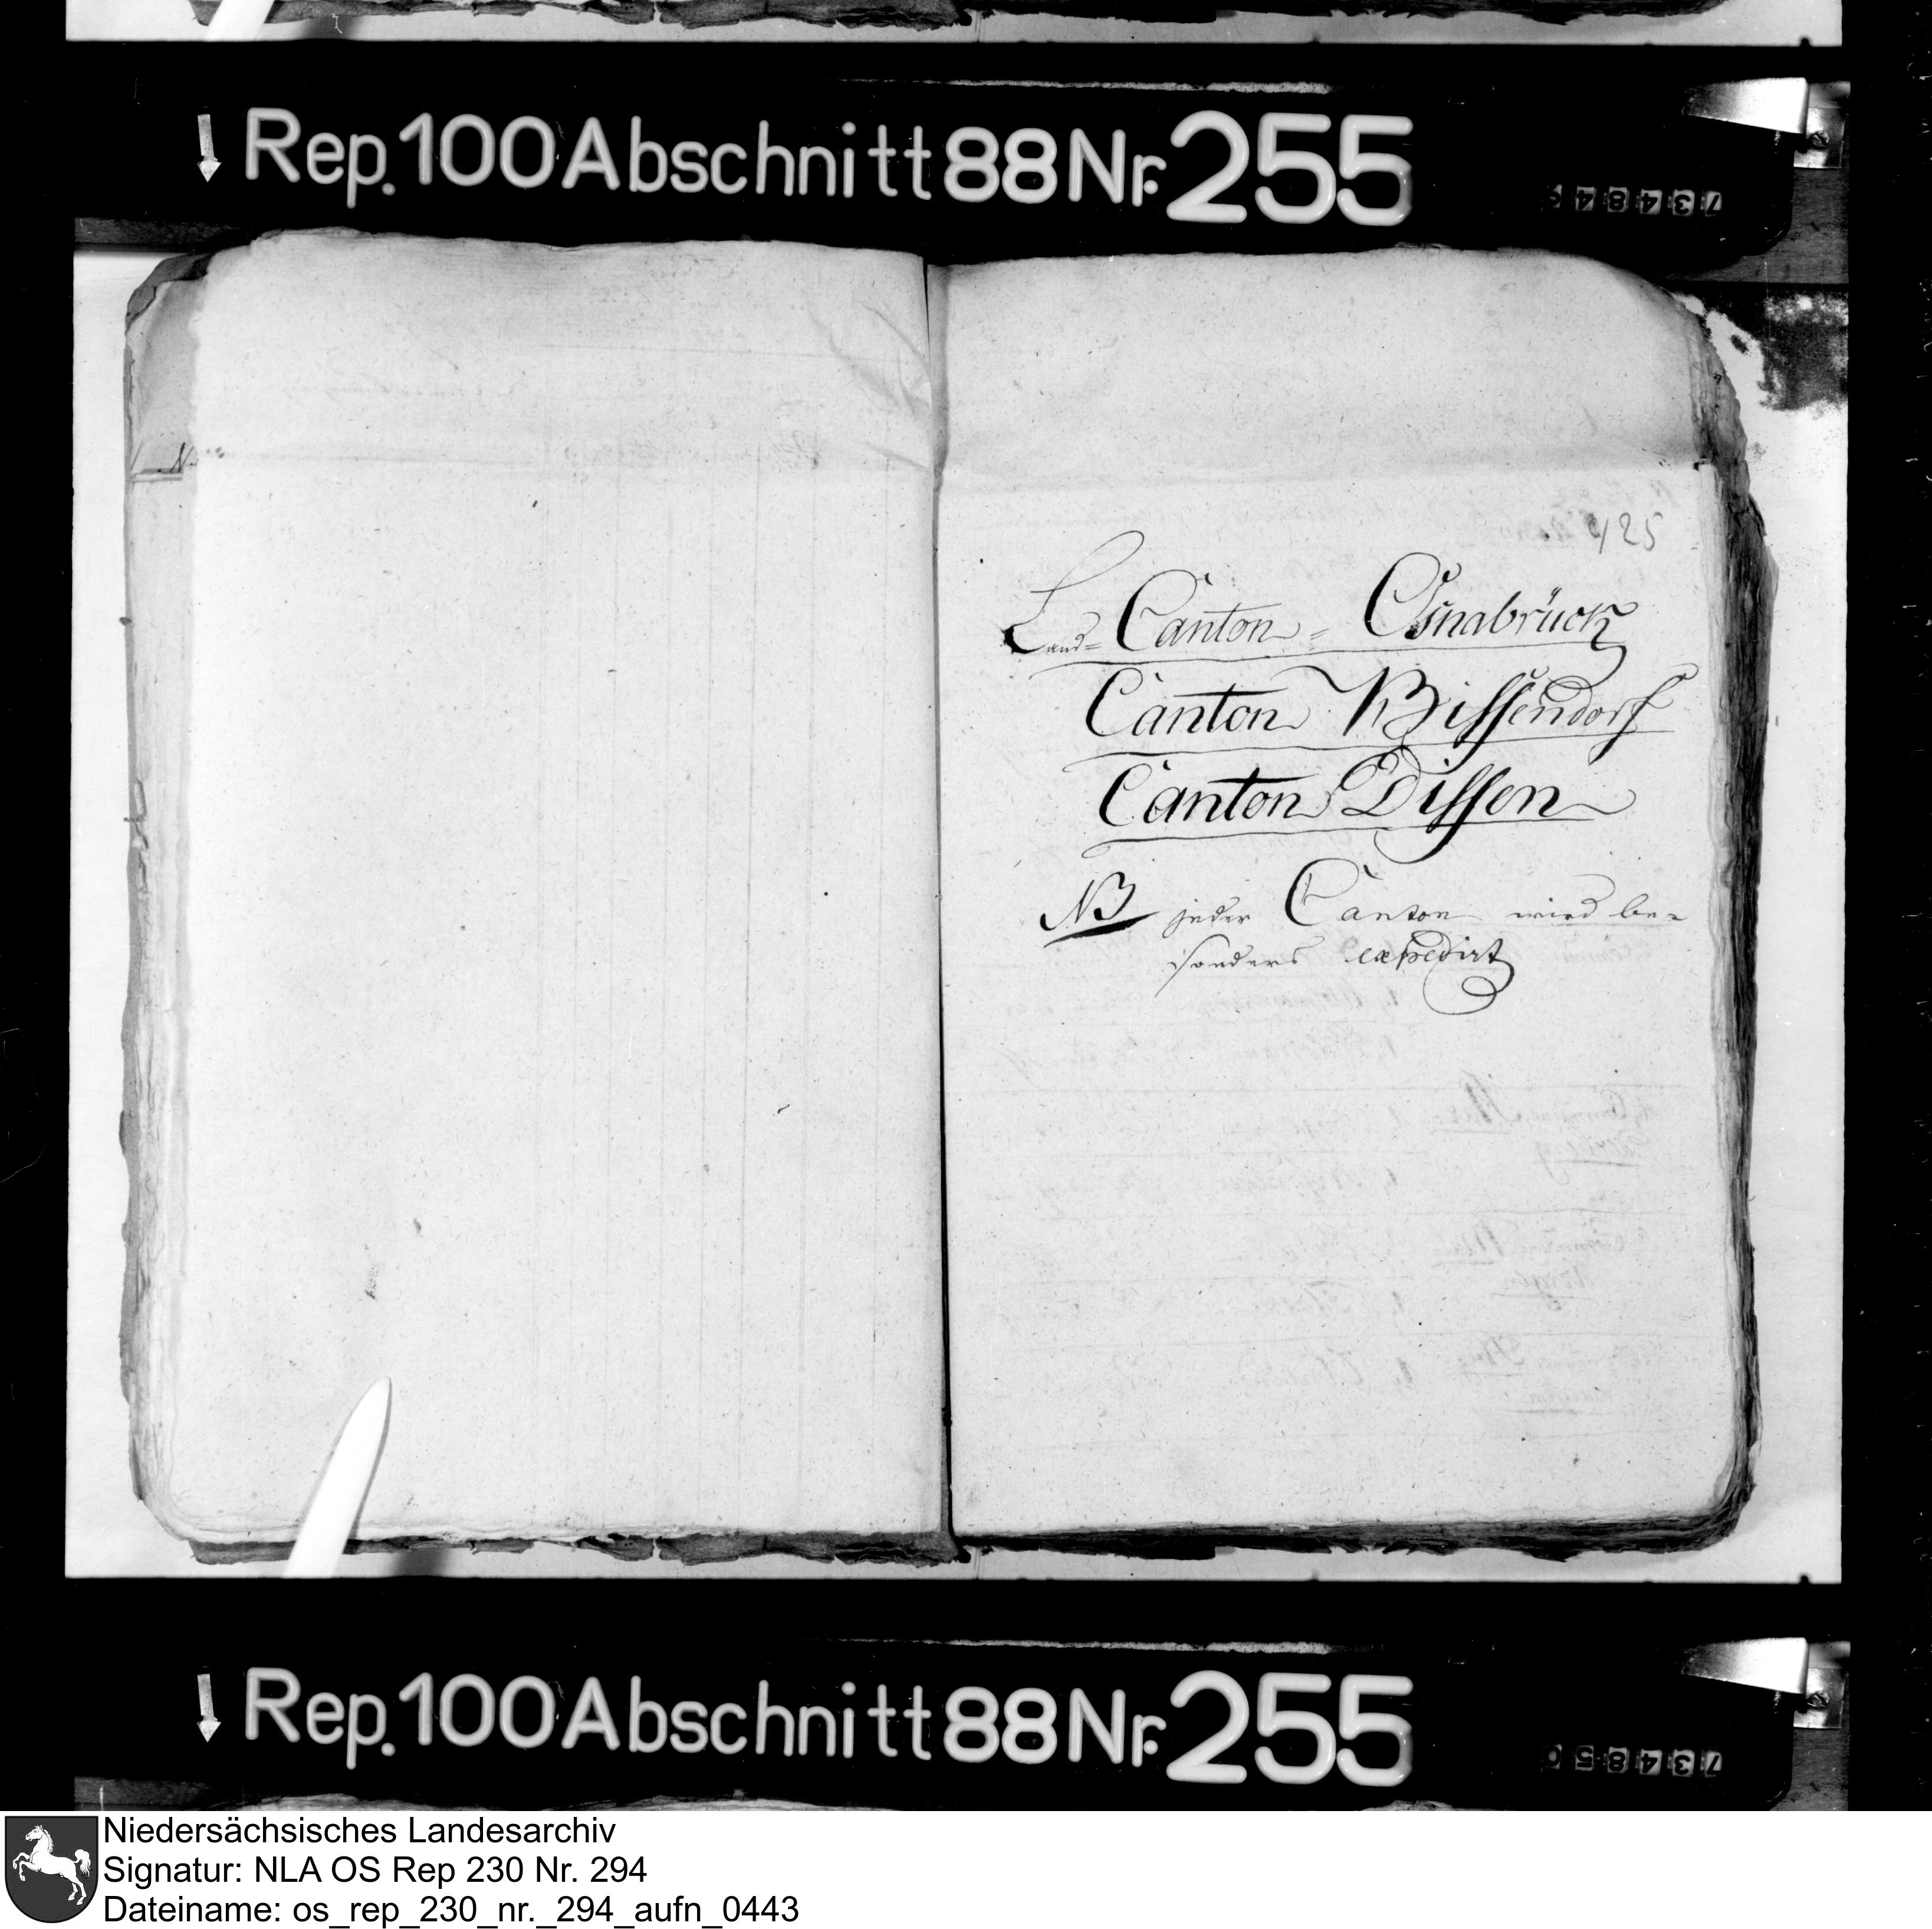 Rep. 100 Abschnitt 88 Nr. 255
425
Land= Canton = Osnabrück
Canton Bissendorf
Canton Dissen
NB jeder Canton wird be=
sonders expedirt
Rep. 100 Abschnitt 88 Nr. 255
Niedersächsisches Landesarchiv
Signatur: NLA OS Rep 230 Nr. 294
Dateiname: os_rep_230_nr._294_aufn_0443